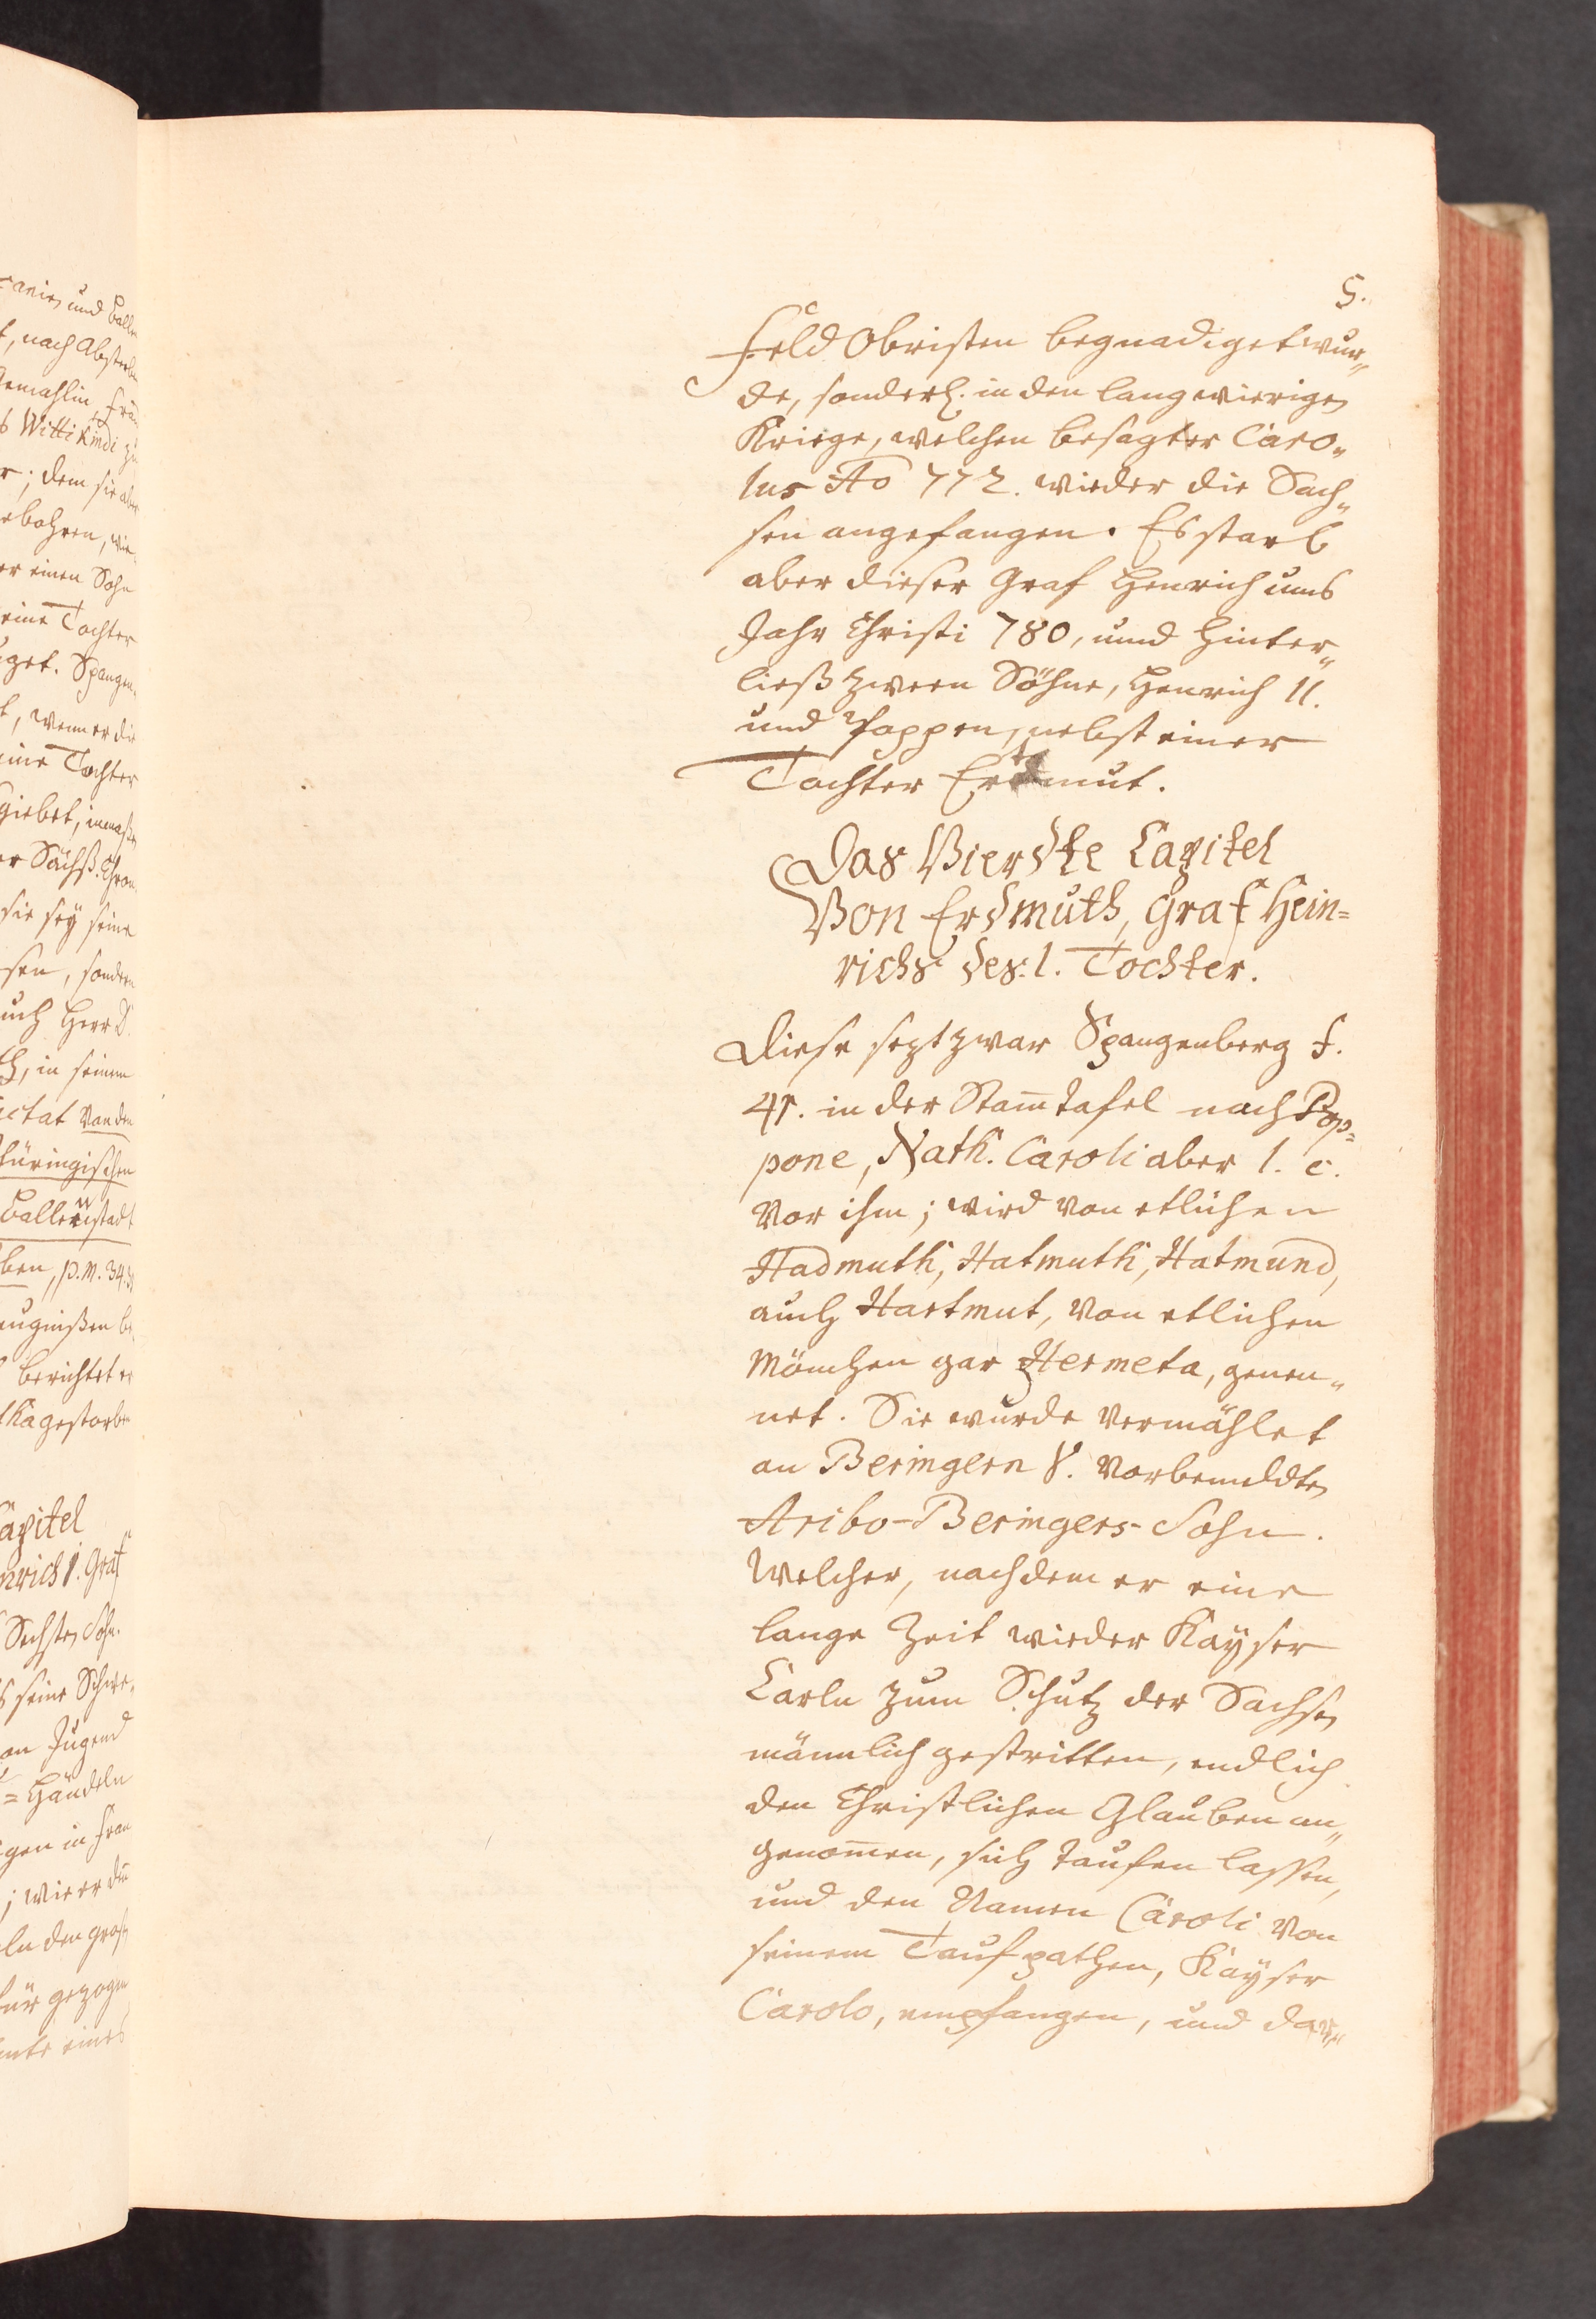 5.
Feld Obristen begnadiget wur„
de, sonderl. in den langwierigen
Kriege, welchen besagter Caro„
lus Ao 772. wieder die Sach„
sen angefangen. Es starb
aber dieser Graf Henrich ums
Jahr Christi 780, und hinter„
ließ zween Söhne, Henrich II.
und Poppen, nebst einer
Tochter Erdmut.
Das Vierdte Capitel
Von Erdmuth, Graf Hein=
richs des I. Tochter.
Diese sezt zwar Spangenberg f.
41. in der Stam̅tafel nach Pop=
pone, Nath. Caroli aber l. c.
vor ihm; wird von etlichen
Hadmuth, Hatmuth, Hatmund,
auch Hartmut, von etlichen
Mönchen gar Hermeta, genen„
net. Sie wurde vermählet
an Beringern V. vorbemeldten
Aribo-Beringers-Sohn.
Welcher, nachdem er eine
lange Zeit wieder Kayser
Carln zum Schutz der Sachsen
männlich gestritten, endlich
den Christlichen Glauben an„
genom̅en, sich taufen lassen,
und den Namen Caroli von
seinem Taufpathen, Kayser
Carolo, empfangen, und dar„
und Balle
, nach Absterben
Gemahlin
Wittikindi zu
; dem sie aber
gebohren, wie
er einen Sohn
eine Tochter
Spangen
, wenn er die
eine Tochter
giebet,
er Sächß. Chron.
sie sey seine
sen, sondern
auch Herr D.
, in seinem
von den
Thüringischen
Ballenstadt
ben, p. m. 34.
berichtet er
gestorben
Capitel
Henrich I. Graf
Sechsten Sohn.
seine Schwe„
von Jugend
= Händeln
gen in Fran
; wie er
den groß
für gezogen
eines